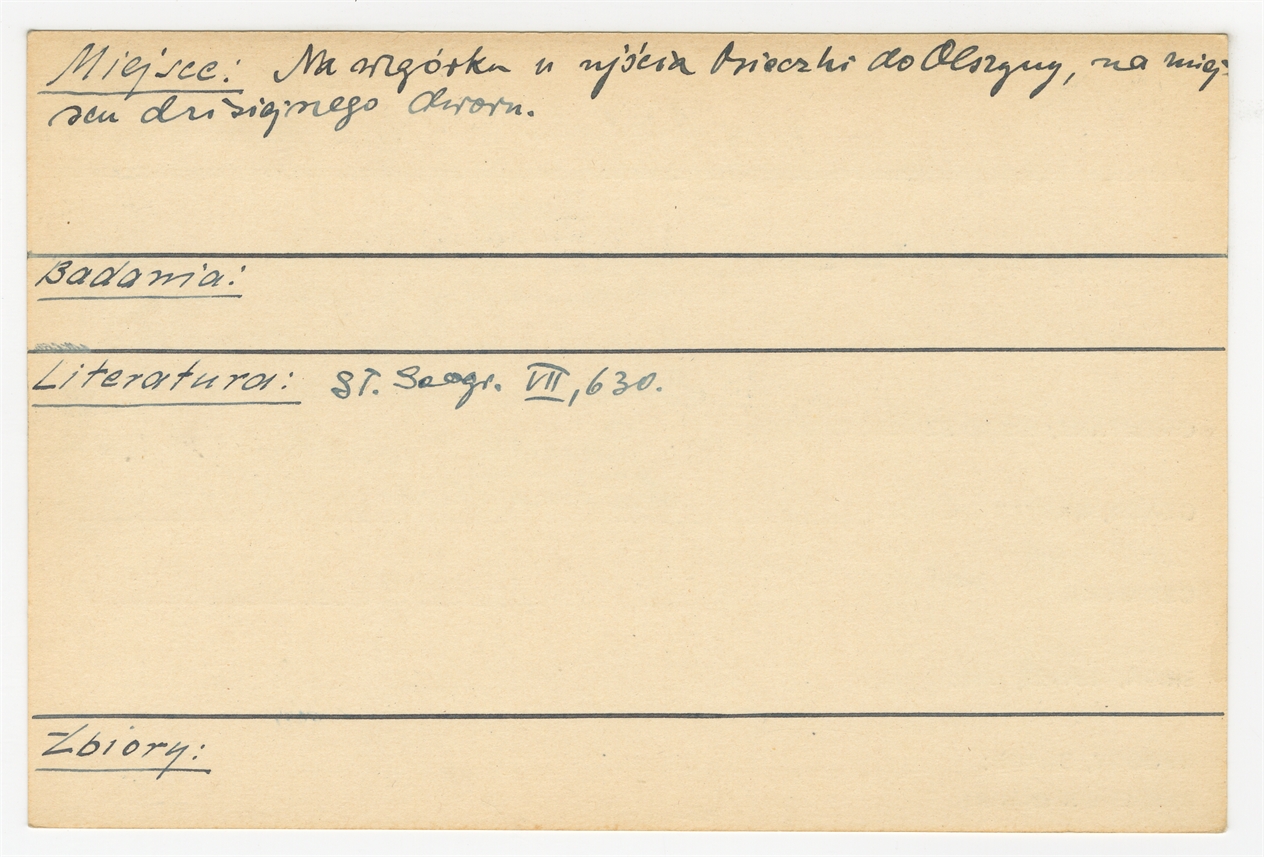 Miejsce: Na wzgórku u ujścia Osieczki do Olszyny, na miej-
scu dzisiejnego dworu.
Badania:
Literatura: Sł. Geogr. VII, 630.
Zbiory: